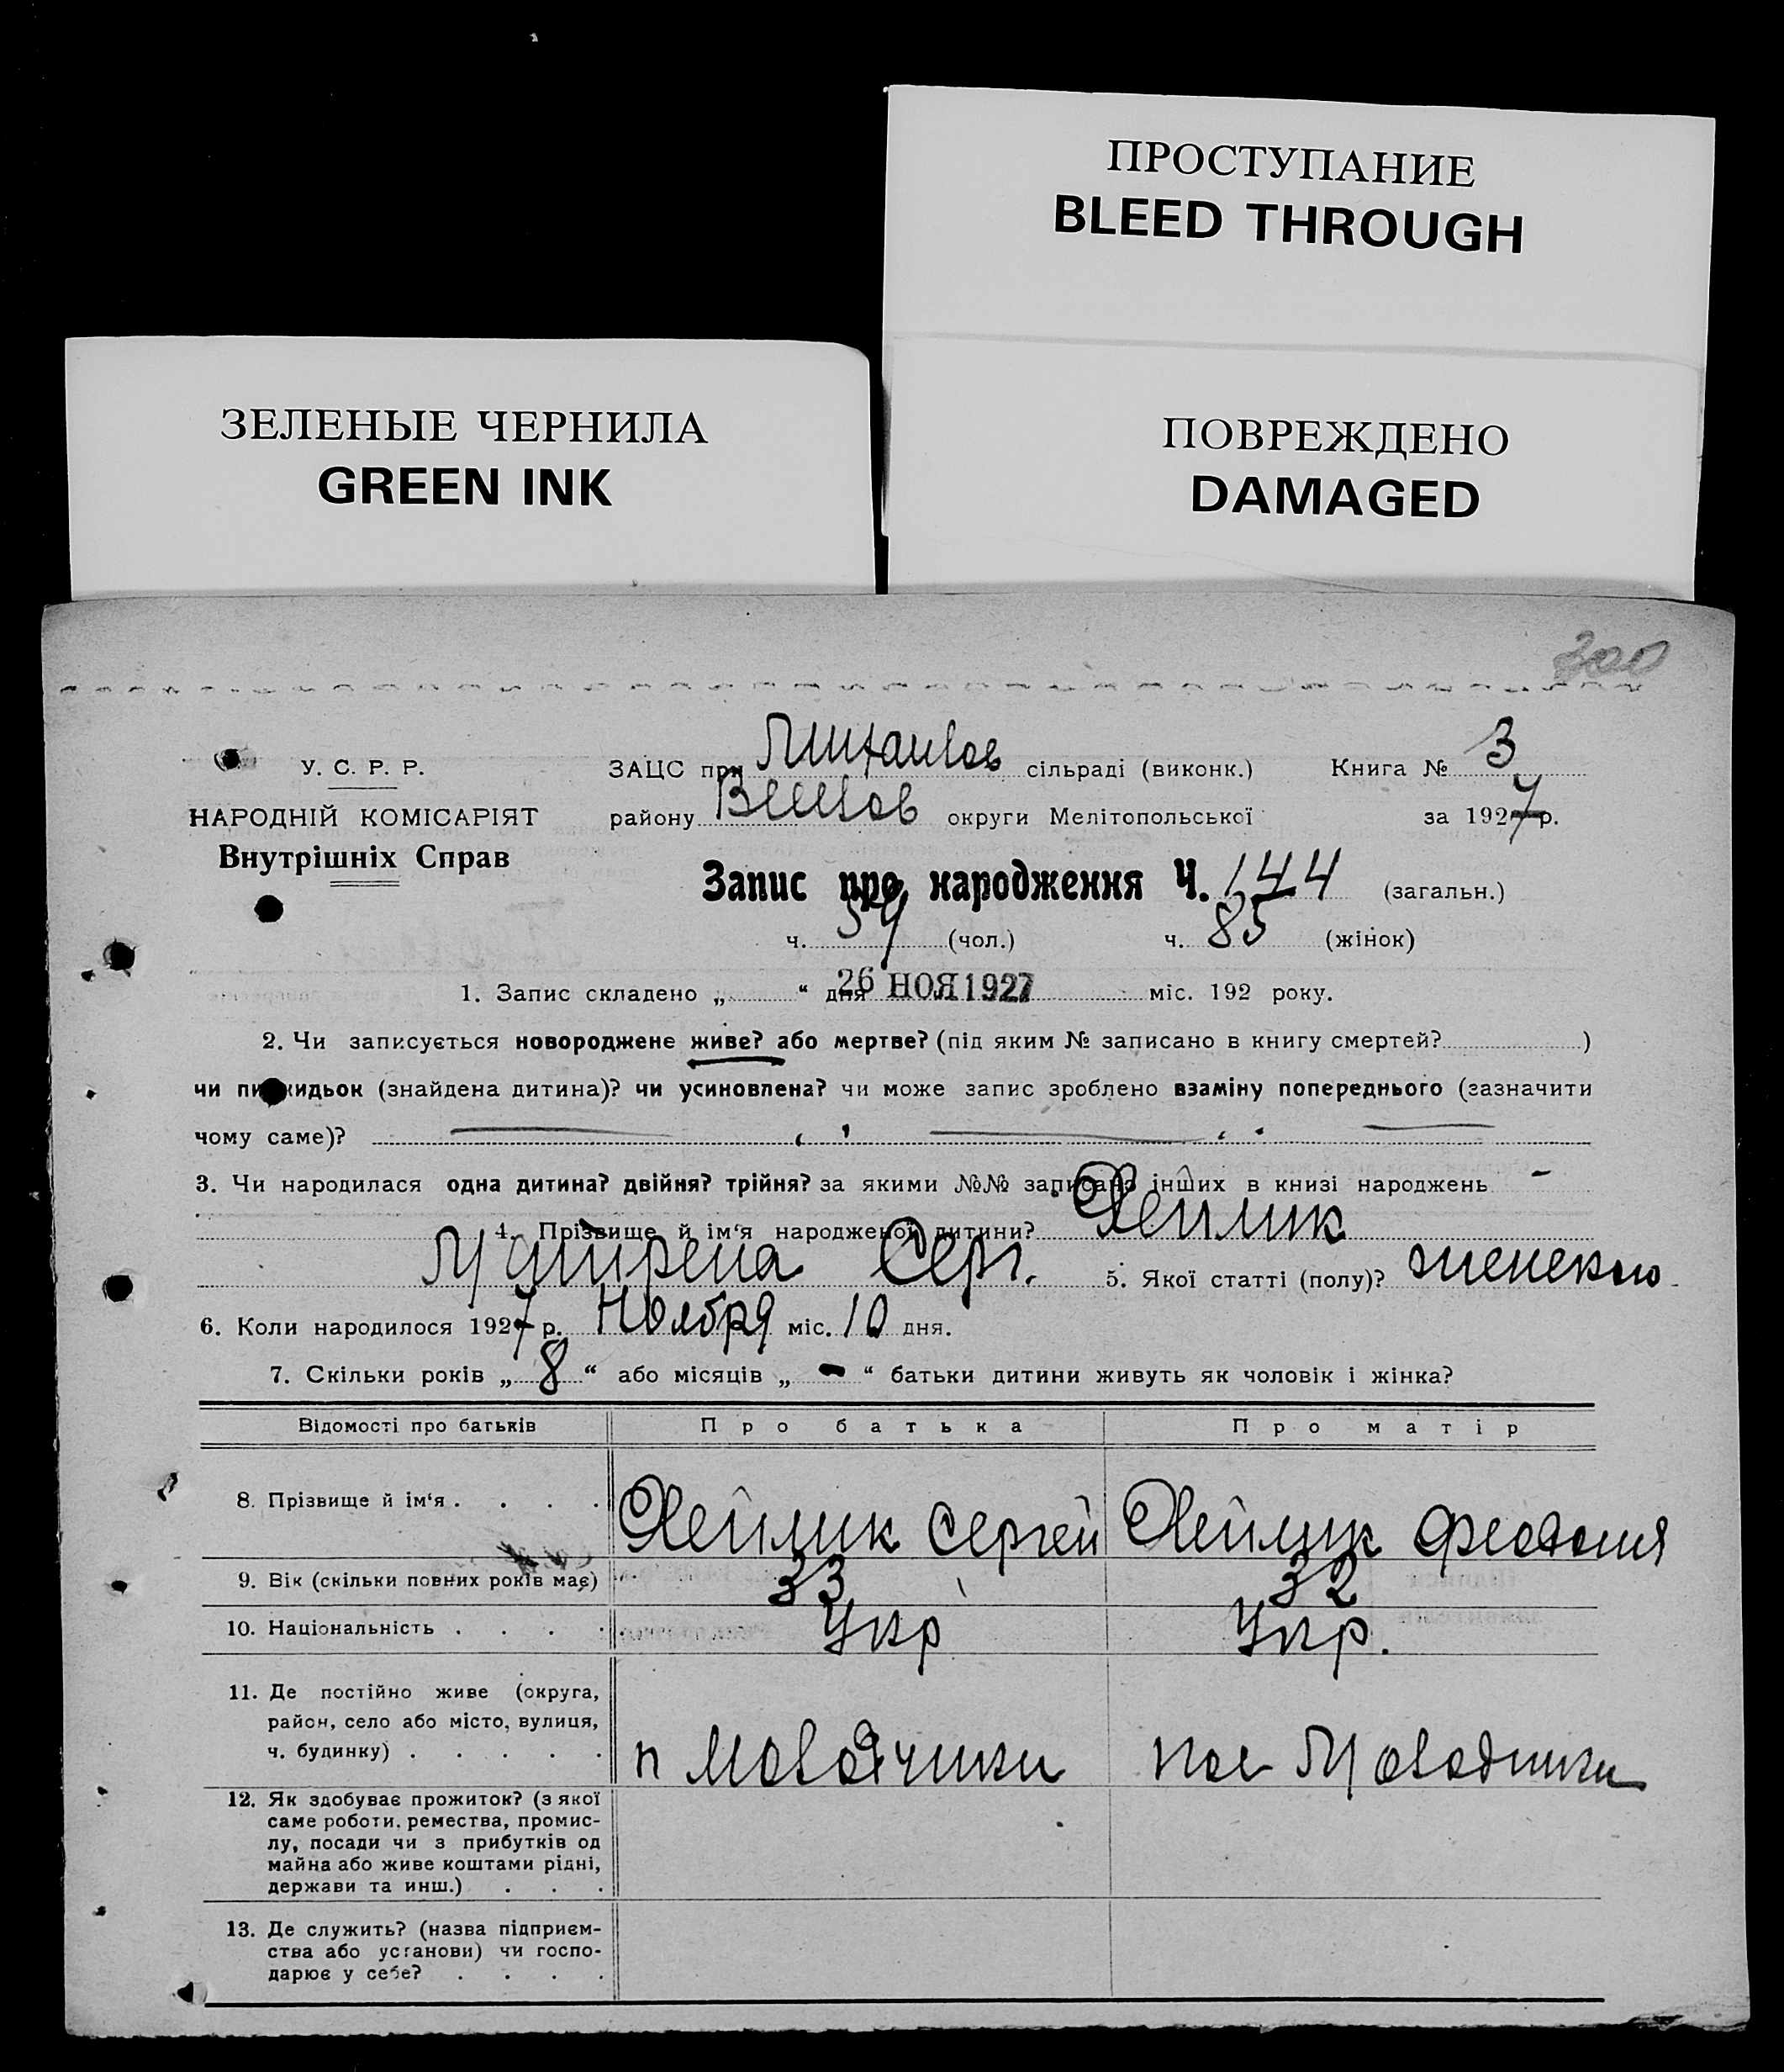 ПРОСТУПАНИЕ
BLEED THROUGH
ЗЕЛЕНЫЕ ЧЕРНИЛА
GREEN INK
ПОВРЕЖДЕНО
DAMAGED
300
У. С. Р. Р.
НАРОДНІЙ КОМІСАРІЯТ
Внутрішніх Справ
ЗАЦС при сільраді (виконк.) Книга № 3
району округи Мелітопольської за 1927 р.
Запис про народження Ч. 144 (загальн.)
ч. 59 (чол.) ч. 85 (жінок)
1. Запис складено „ “ дня 26 НОЯ 1927 міс. 192 року.
2. Чи записується новороджене живе? або мертве? (під яким № записано в книгу смертей? )
чи підкидьок (знайдена дитина)? чи усиновлена? чи може запис зроблено взаміну попереднього (зазначити
чому саме)?
3. Чи народилася одна дитина? двійня? трійня? за якими №№ записано інших в книзі народжень -
4. Прізвище й ім‘я народженої дитини? Хейлик
Серг. 5. Якої статті (полу)? женскаю
6. Коли народилося 1927 р. Ноября міс. 10 дня.
7. Скільки років „ 8 “ або місяців „ - “ батьки дитини живуть як чоловік і жінка?
Відомості про батьків Про батька Про матір
8. Прізвище й ім‘я . . . . Хейлик Сергей Хейлик Феодосия
9. Вік (скільки повних років має) 33 32
10. Національність . . . . Укр Укр.
11. Де постійно живе (округа,
район, село або місто, вулиця,
ч. будинку) . . . . . п пос
12. Як здобуває прожиток? (з якої
саме роботи, ремества, промис-
лу, посади чи з прибутків од
майна або живе коштами рідні,
держави та инш.) . . .
13. Де служить? (назва підприєм-
ства або установи) чи госпо-
дарює у себе? . . . .